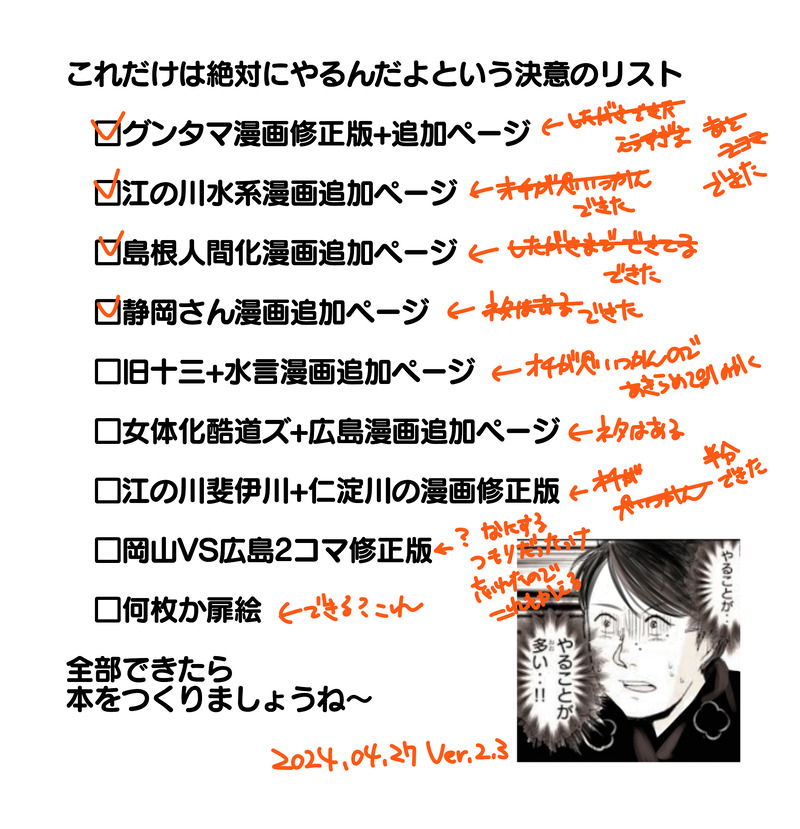 これだけは絶対にやるんだよという決意のリスト
☑グンタマ漫画修正版+追加ページ ←したがきできた
こうすぎる
あと
2コマ
できた
☑江の川水系漫画追加ページ ←オチが思いつかん
できた
☑島根人間化漫画追加ページ ←したがきまでできてる
できた
☑静岡さん漫画追加ページ ←ネタはある できた
□旧十三+水言漫画追加ページ ←オチが思いつかんので
あきらめて別のかく
□女体化酷道ズ+広島漫画追加ページ ←ネタはある
□江の川斐伊川+仁淀川の漫画修正版 ←オチが
思いつかん
半分
できた
□岡山VS広島2コマ修正版 ←? なにする
つもりだったっけ
忘れたので
これもかえる
□何枚か扉絵 ←できる?これ
全部できたら
本をつくりましょうね〜
やることが‥
やることが
多い‥!!
おお
2024.04.27 Ver.2.3